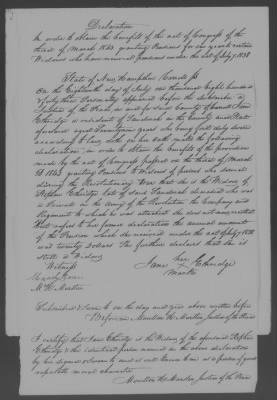 Declaration
In order to obtain the benefit of the act of Congress of the
third of March 1843 granting Pensions for one year to certain
Widows who have received pensions under the act of July 7, 1838
State of New Hampshire
On the Eighteenth day of July one thousand Eight hundred
& forty three Personally appeared before the Subscriber a
Justice of the Peace in and for Said County of Jane
Ethridge a resident of Sandwich in the County and State
aforesaid aged years who being first duly Sworn
according to law doth on her oath make the following
declaration, in order to obtain the benefit of the provision
made by the act of Congress passed on the third of March
1843 granting Pensions to Widows of persons who Served
during the Revolutionary War that She is the Widow of
Stephen Ethridge late of Said Sandwich deceased who was
a Private in the Army of the Revolution the Company and
Regiment to which he was attached She does not now recollect
but refers to her former declaration the annual amount
of the Pension which She received under the act of July 1838
was twenty Dollars She further declares that She is
still a Widow
Witness
M. H. Marston
Jane her X mark Ethridge
Subscribed & Sworn to on the day and year above written before
Before me Moulton H. Marston, Justice of the Peace
I certify that Jane Ethridge is the Widow of the aforesaid Stephen
Ethridge & the identical person named in the above declaration
by her signed & Sworn to and is well known to me as a person of good
respectable moral character
Moulton H. Marston, Justice of the Peace